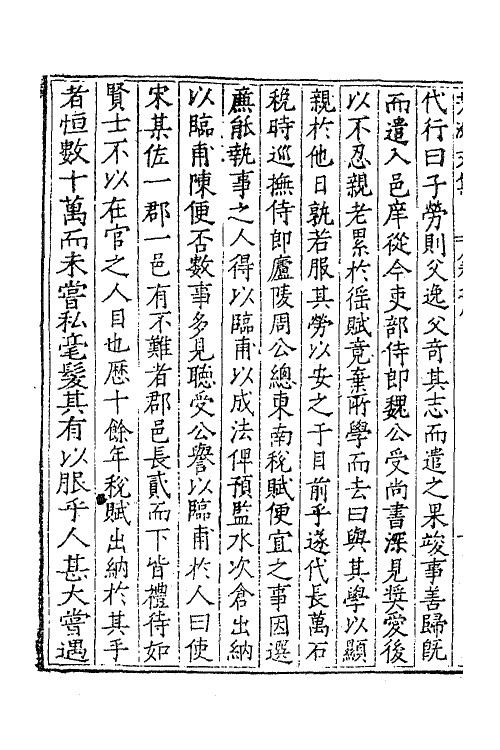 代行曰子勞則父逸父奇其志而遣之果竣事善歸既
而遣入邑庠從今吏部侍郎魏公受尚書深見奬愛後
以不忍親老累於徭賦竟棄所學而去曰與其學以顯
親於他日孰若服其勞以安之于目前乎遂代長萬石
稅時巡撫侍郎廬陵周公總東南稅賦便宜之事因選
廉能執事之人得以臨甫以成法俾預監水次倉出納
以臨甫陳便否數事多見聽受公譽以臨甫於人曰使
宋某佐一郡一邑有不難者郡邑長貳而下皆禮待如
賢士不以在官之人目也歷十餘年稅賦出納於其手
者恒數十萬而未嘗私毫髮其有以服乎人甚大嘗遇